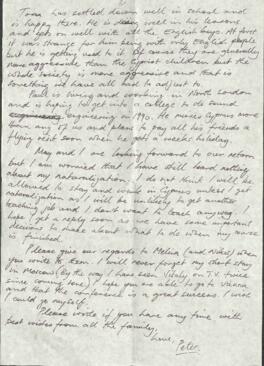 Tom has settled down well in school and
is happy there. He is doing well in his lessons
and gets on well with all the English boys. At first
it was strange for him being with only English people
but he is getting used to it. Of course they are generally
more aggressive than the Cypriot children but the
whole society is more aggressive and that is
something we have all had to adjust to.
Paul is living and working in North London
and is hoping to get into a college to do sound
engineering in 1990. He misses Cyprus more
than any of us and plans to pay all his friends a
flying visit soon when he has a weeks holiday.
May and I are looking forward to our return
but I am worried that I have still heard nothing
about my naturalization. I do not think I will be
allowed to stay and work in Cyprus unless I get
naturalization as I will be unlikely to get another
teaching job and I don't want to teach anyway. I
hope I get a reply soon as we have some important
decisions to make about what to do when my course
is finished.
Please give our regards to Melina (and Nikos) when
you write to them. I will never forget my short stay
in Moscow (By the way I have seen Vitaly on T.V. twice
since coming here). I hope you are able to go to Varna
and that the conference is a great success. I wish
I could go myself.
Please write if you have any time with
best wishes from all the family,
Love, Peter.